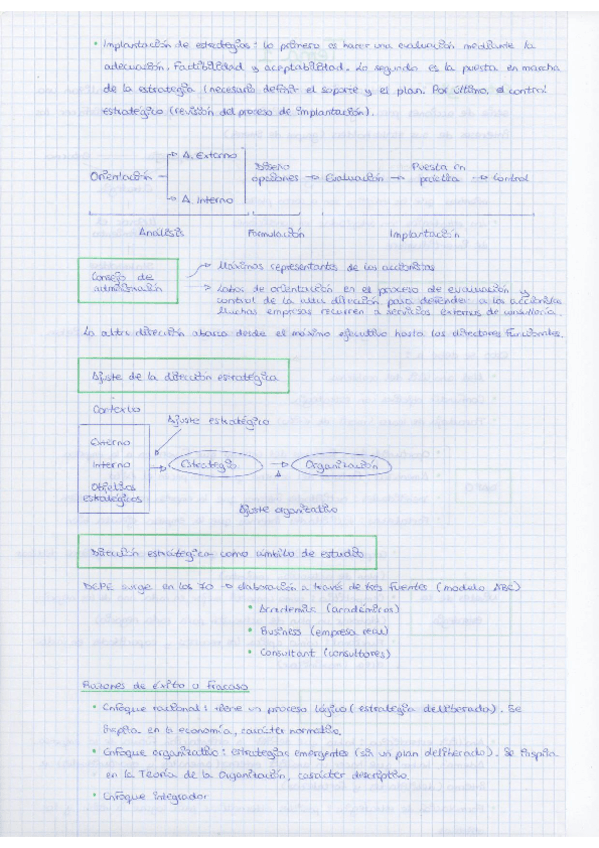 • Implantación de estrategias: lo primero es hacer una evaluación mediante la
adecuación, factibilidad y aceptabilidad. Lo segundo es la puesta en marcha
de la estrategia (necesario definir el soporte y el plan. Por último, el control
estratégico (revisión del proceso de implantación).
Orientación → A. Externo
→ A. Interno
Diseño opciones → Evaluación → Puesta en práctica → Control
Análisis Formulación Implantación
Consejo de
administración
→ Máximos representantes de los accionistas
→ Labor de orientación en el proceso de evaluación y
control de la alta dirección para defender a los accionistas
Muchas empresas recurren a servicios externos de consultoría.
La alta dirección abarca desde el máximo ejecutivo hasta los directores funcionales.
Ajuste de la dirección estratégica
Contexto
Ajuste estratégico
Externo
Interno
Objetivos
estratégicos
Estrategia → Organización
Ajuste organizativo
Dirección estratégica como ámbito de estudio
DEPE surge en los 70 → elaboración a través de tres fuentes (modelo ABC)
• Academic (académicos)
• Business (empresa real)
• Consultant (consultores)
Razones de éxito o fracaso
• Enfoque racional: tiene un proceso lógico (estrategia deliberada). Se
inspira en la economía, carácter normativo.
• Enfoque organizativo: estrategias emergentes (sin un plan deliberado). Se inspira
en la Teoría de la Organización, carácter descriptivo.
• Enfoque integrador